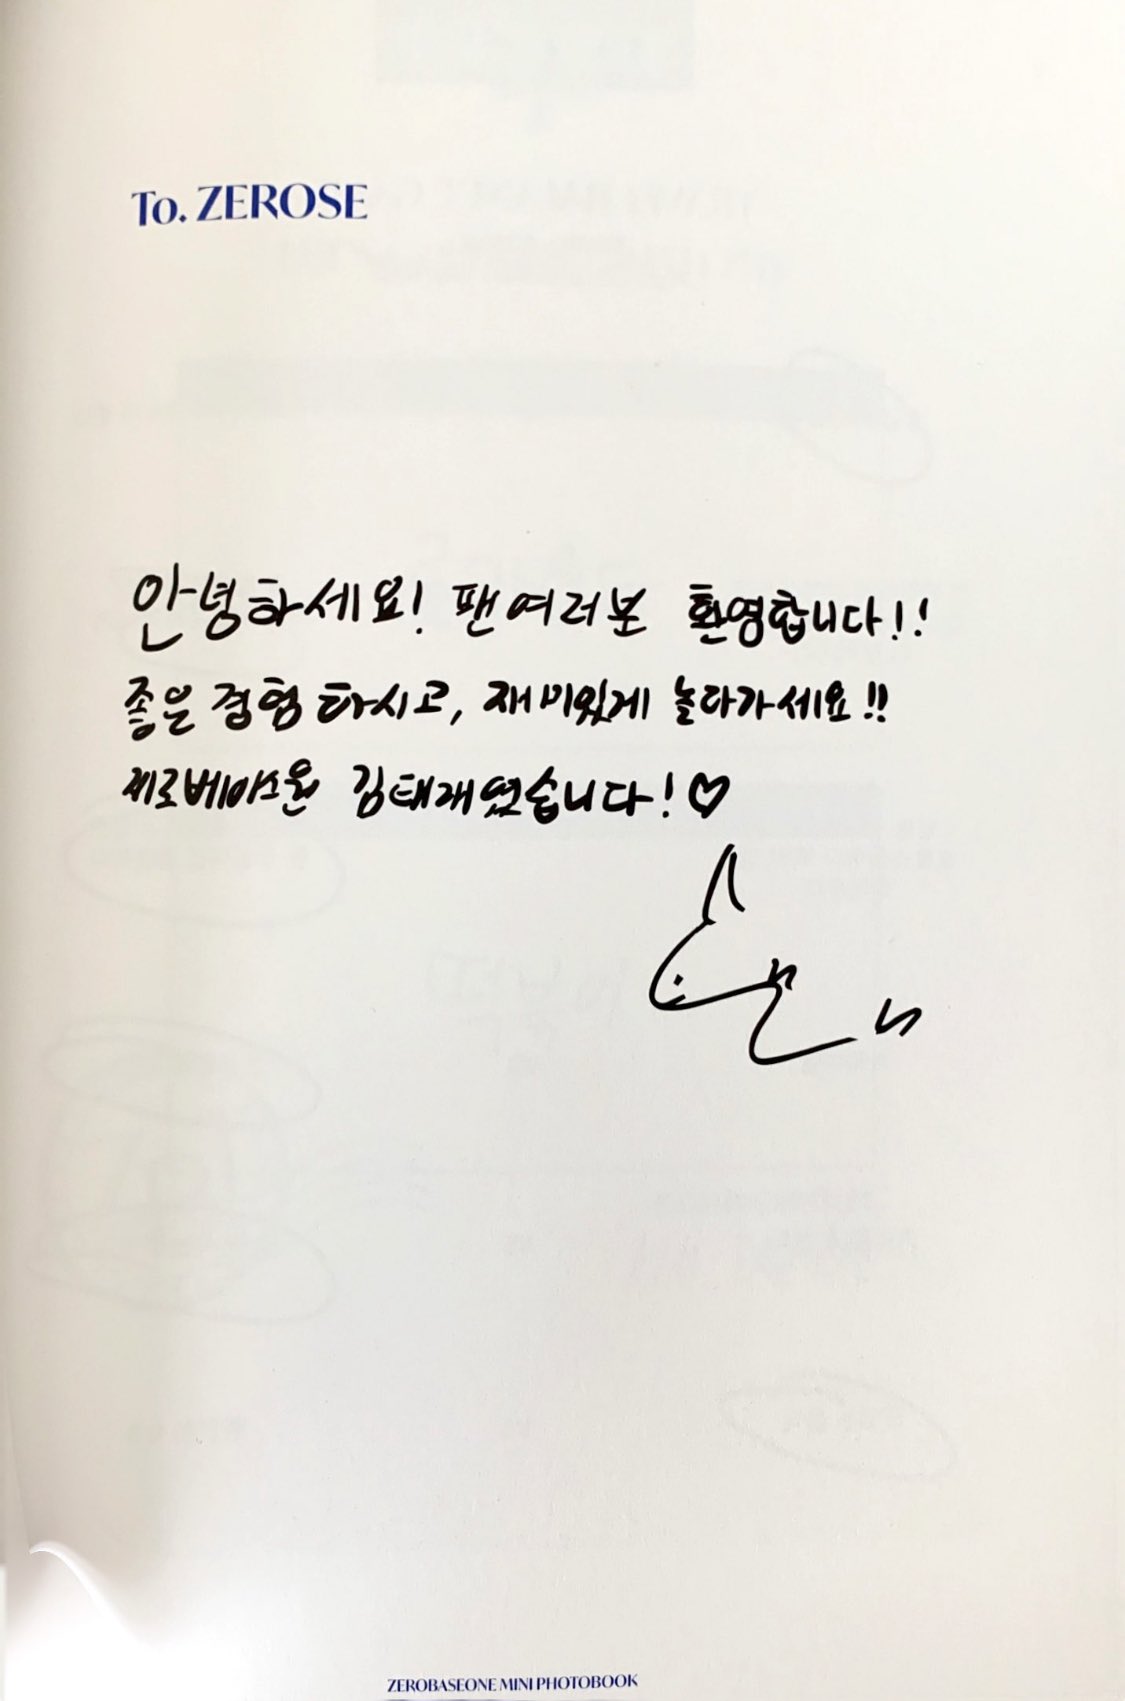 To. ZEROSE
안녕하세요! 팬여러분 환영합니다!!
좋은 경험 하시고, 재미있게 놀다가세요!!
제로베이스원 김태래였습니다!♡
ZEROBASEONE MINI PHOTOBOOK